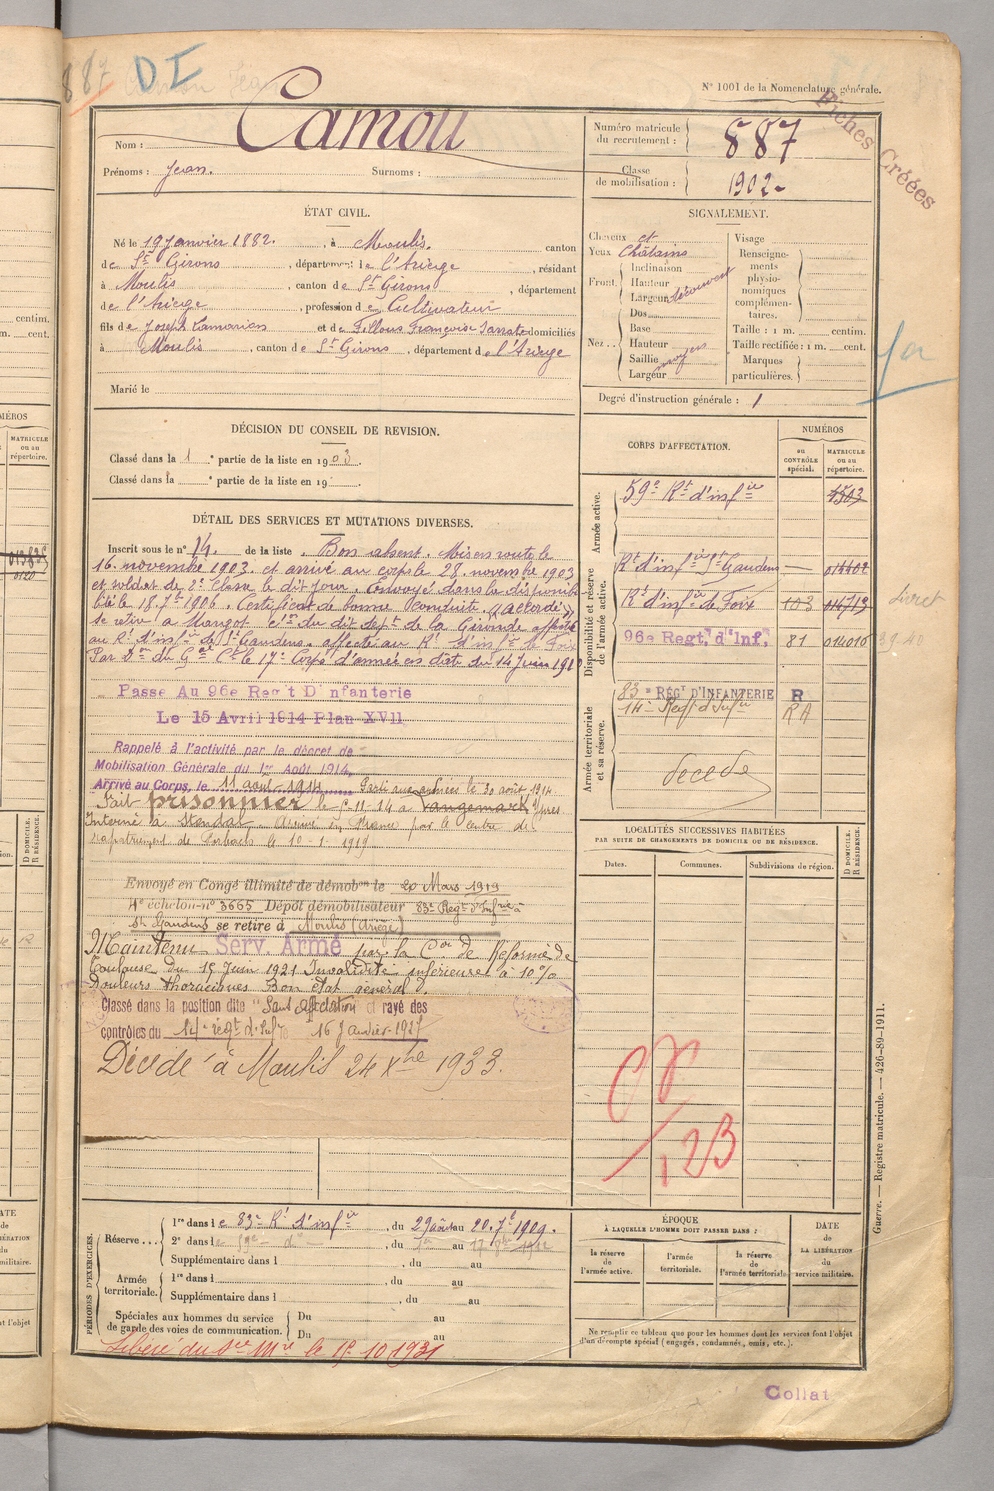 887 DI
N° 1001 de la Nomenclature générale.
Fiches Créées
Nom : Camou
Prénoms : Jean. Surnoms :
Numéro matricule du recrutement : 887
Classe de mobilisation : 1902
ÉTAT CIVIL.
Né le 19 Janvier 1882. , à Moulis. canton
de St Girons , département de l'Ariège , résidant
à Moulis , canton de St Girons , département
de l'Ariège , profession de Cultivateur
fils de Joseph et de Françoise domiciliés
à Moulis , canton de St Girons , département de l'Ariège
Marié le
SIGNALEMENT.
Cheveux et
Yeux Châtains
Front. Inclinaison
Hauteur
Largeur découvert
Nez .. Dos
Base
Hauteur
Saillie moyen
Largeur
Visage
Renseignements physionomiques complémentaires.
Taille : 1 m. centim.
Taille rectifiée : 1 m. cent.
Marques particulières.
Degré d'instruction générale : 1
DÉCISION DU CONSEIL DE REVISION.
Classé dans la 1 e partie de la liste en 1903.
Classé dans la e partie de la liste en 19
DÉTAIL DES SERVICES ET MUTATIONS DIVERSES.
Inscrit sous le n° 14. de la liste . Bon absent. Mis en route le
16. novembre 1903. et arrivé au corps le 28. novembre 1903
et soldat de 2e classe le dit jour. Envoyé dans la disponibi
lité le 18. 7bre 1906. Certificat de bonne Conduite "accordé"
se retire à Margot dudit dept de la Gironde affecté
au Rt d'infie de St Gaudens. affecté au Rt d'infie de Foix
Par Don du Gal Ct le 17e Corps d'armée en date du 14 Juin 191
Passé Au 96e Reg t D'nfanterie
Le 15 Avril 1914 Plan XVII
Rappelé à l'activité par le décret de
Mobilisation Générale du 1er Août 1914.
Arrivé au Corps, le 11 août 1914. Parti aux armées le 30 août 1914
Fait prisonnier le 5-11-14 à Langemark Ypres
Interné à Stendal. en France par le centre de
rapatriement de le 10-1-1919
Envoyé en Congé illimité de démobon le 20 Mars 1919
4e échelon n° 3665 Dépôt démobilisateur 83e Regt d'Infrie à
St Gaudens se retire à Moulis (Ariège)
Maintenu Serv. Armé par la Con de Réforme de
Toulouse du 15 Juin 1921 Invalidité inférieure à 10%
Douleurs thoraciques Bon état général.
Classé dans la position dite "Sans affectation" et rayé des
contrôles du 14e régt d'Infie le 16 Janvier 1927
Décédé à Moulis 24 Xbre 1933.
CORPS D'AFFECTATION.
NUMÉROS
au CONTRÔLE spécial.
MATRICULE ou au répertoire.
Armée active.
59e Rt d'infie 4503
Disponibilité et réserve de l'armée active.
Rt d'infie St Gaudens — 014402
Rt d'infie de Foix 103 014713
96e Regt d'Inf. 81 014016
Livret
Armée territoriale et sa réserve.
83e RÉGt D'INFANTERIE R
14e Regt d'Infie RA
décédé
LOCALITÉS SUCCESSIVES HABITÉES
PAR SUITE DE CHANGEMENTS DE DOMICILE OU DE RÉSIDENCE.
Dates. Communes. Subdivisions de région. D DOMICILE. R RÉSIDENCE.
CR / 123
PÉRIODES D'EXERCICES.
Réserve... 1re dans le 83e Rt d'infie , du 29 août au 20. 7bre 1909.
2e dans le 59e do , du au 17
Supplémentaire dans l , du au
Armée territoriale. 1re dans l , du au
Supplémentaire dans l , du au
Spéciales aux hommes du service de garde des voies de communication. Du au
Du au
Libéré du Sce Mre le 15-10 1931
ÉPOQUE
À LAQUELLE L'HOMME DOIT PASSER DANS :
la réserve de l'armée active. l'armée territoriale. la réserve de l'armée territoriale.
DATE de LA LIBÉRATION du service militaire.
Ne remplir ce tableau que pour les hommes dont les services font l'objet
d'un décompte spécial (engagés, condamnés, omis, etc.).
Guerre. — Registre matricule. — 426-89-1911.
Collat